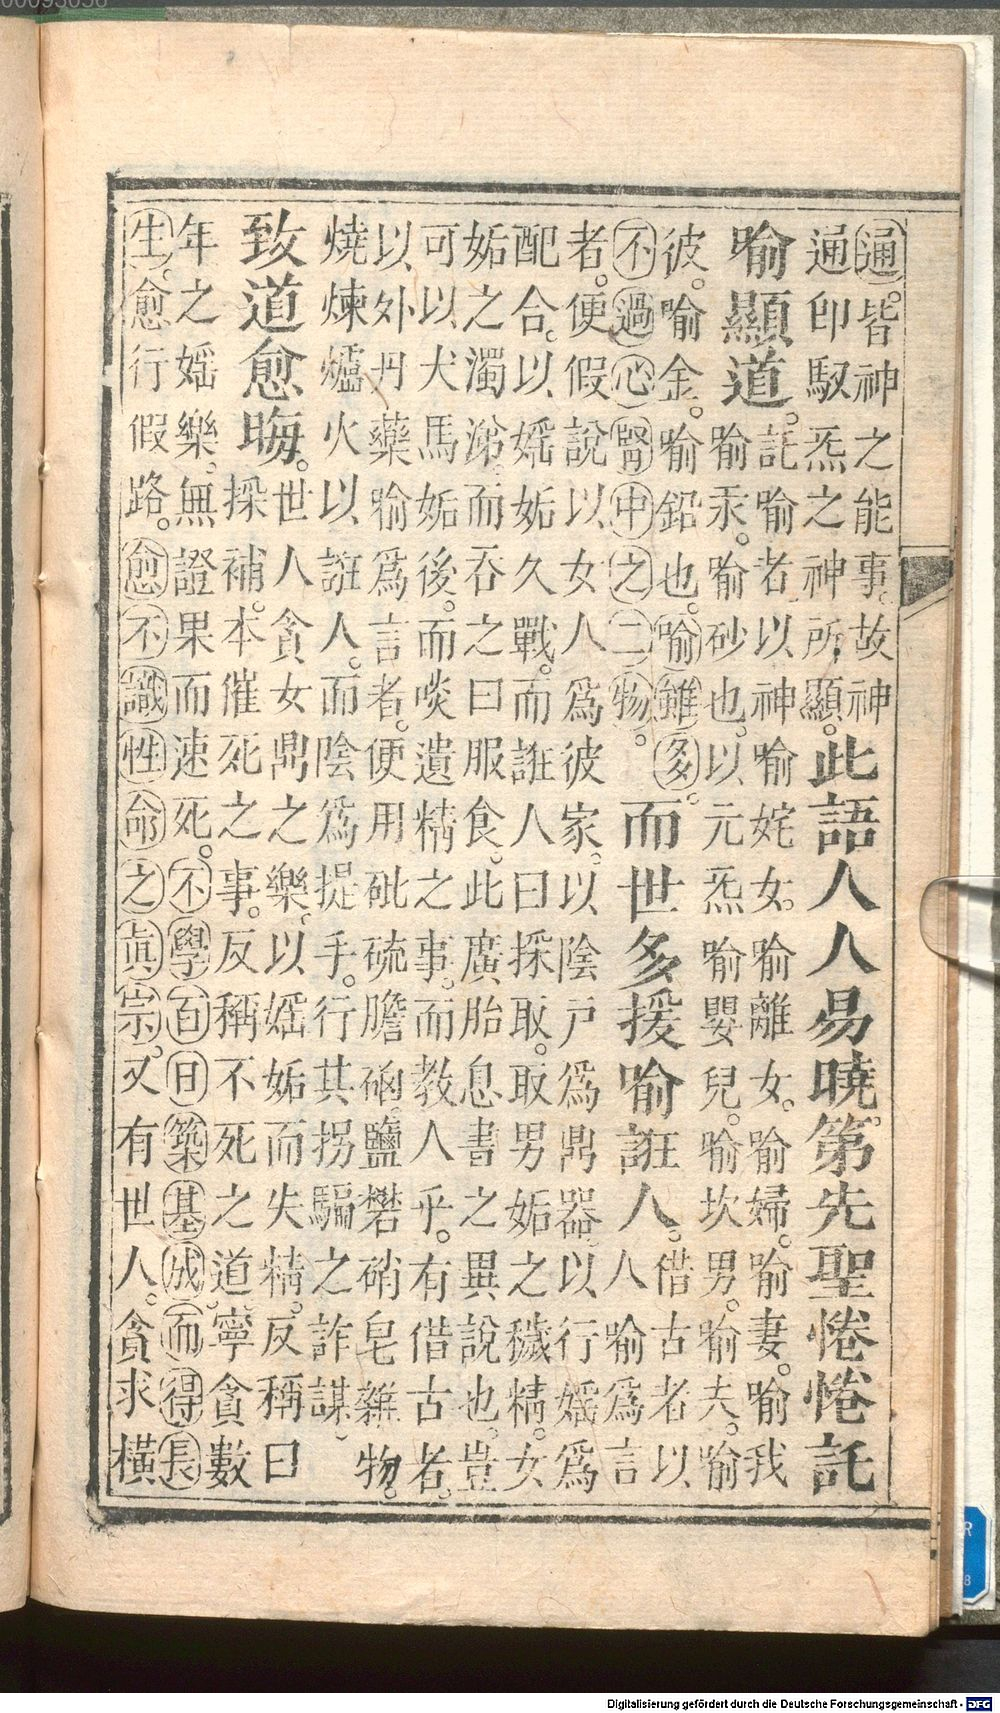 通。皆神之能事。故神
通印馭炁之神所顯。
此語人人易曉。第先聖惓惓託
喻顯道。
託喻者以神喻姹女。喻離女。喻婦。喻妻。喻我
喻汞。喻砂也。以元炁喻嬰兒。喻坎男。喻夫。喻
彼。喻金。喻鉛也。喻雖多。
不過心腎中之二物。
而世多援喻誑人。
借古者以
人喻爲言
者。便假說以女人爲彼家。以陰戶爲鼎器。以行婬爲
配合。以婬姤久戰。而誑人曰採取。取男姤之穢精。女
姤之濁涕。而吞之曰服食。此廣胎息書之異說也。豈
可以犬馬姤後。而啖遺精之事。而教人乎。有借古者。
以外丹藥喻爲言者。便用砒硫膽硇。鹽礬硝皂雜物。
燒煉爐火以誑人。而陰爲提手。行其拐騙之詐謀。
致道愈晦。
世人貪女鼎之樂。以婬姤而失精。反稱曰
採補。本催死之事。反稱不死之道。寧貪數
年之婬樂。無證果而速死。不學百日築基成。而得長
生。愈行假路。愈不識性命之眞宗。又有世人。貪求橫
Digitalisierung gefördert durch die Deutsche Forschungsgemeinschaft - DFG